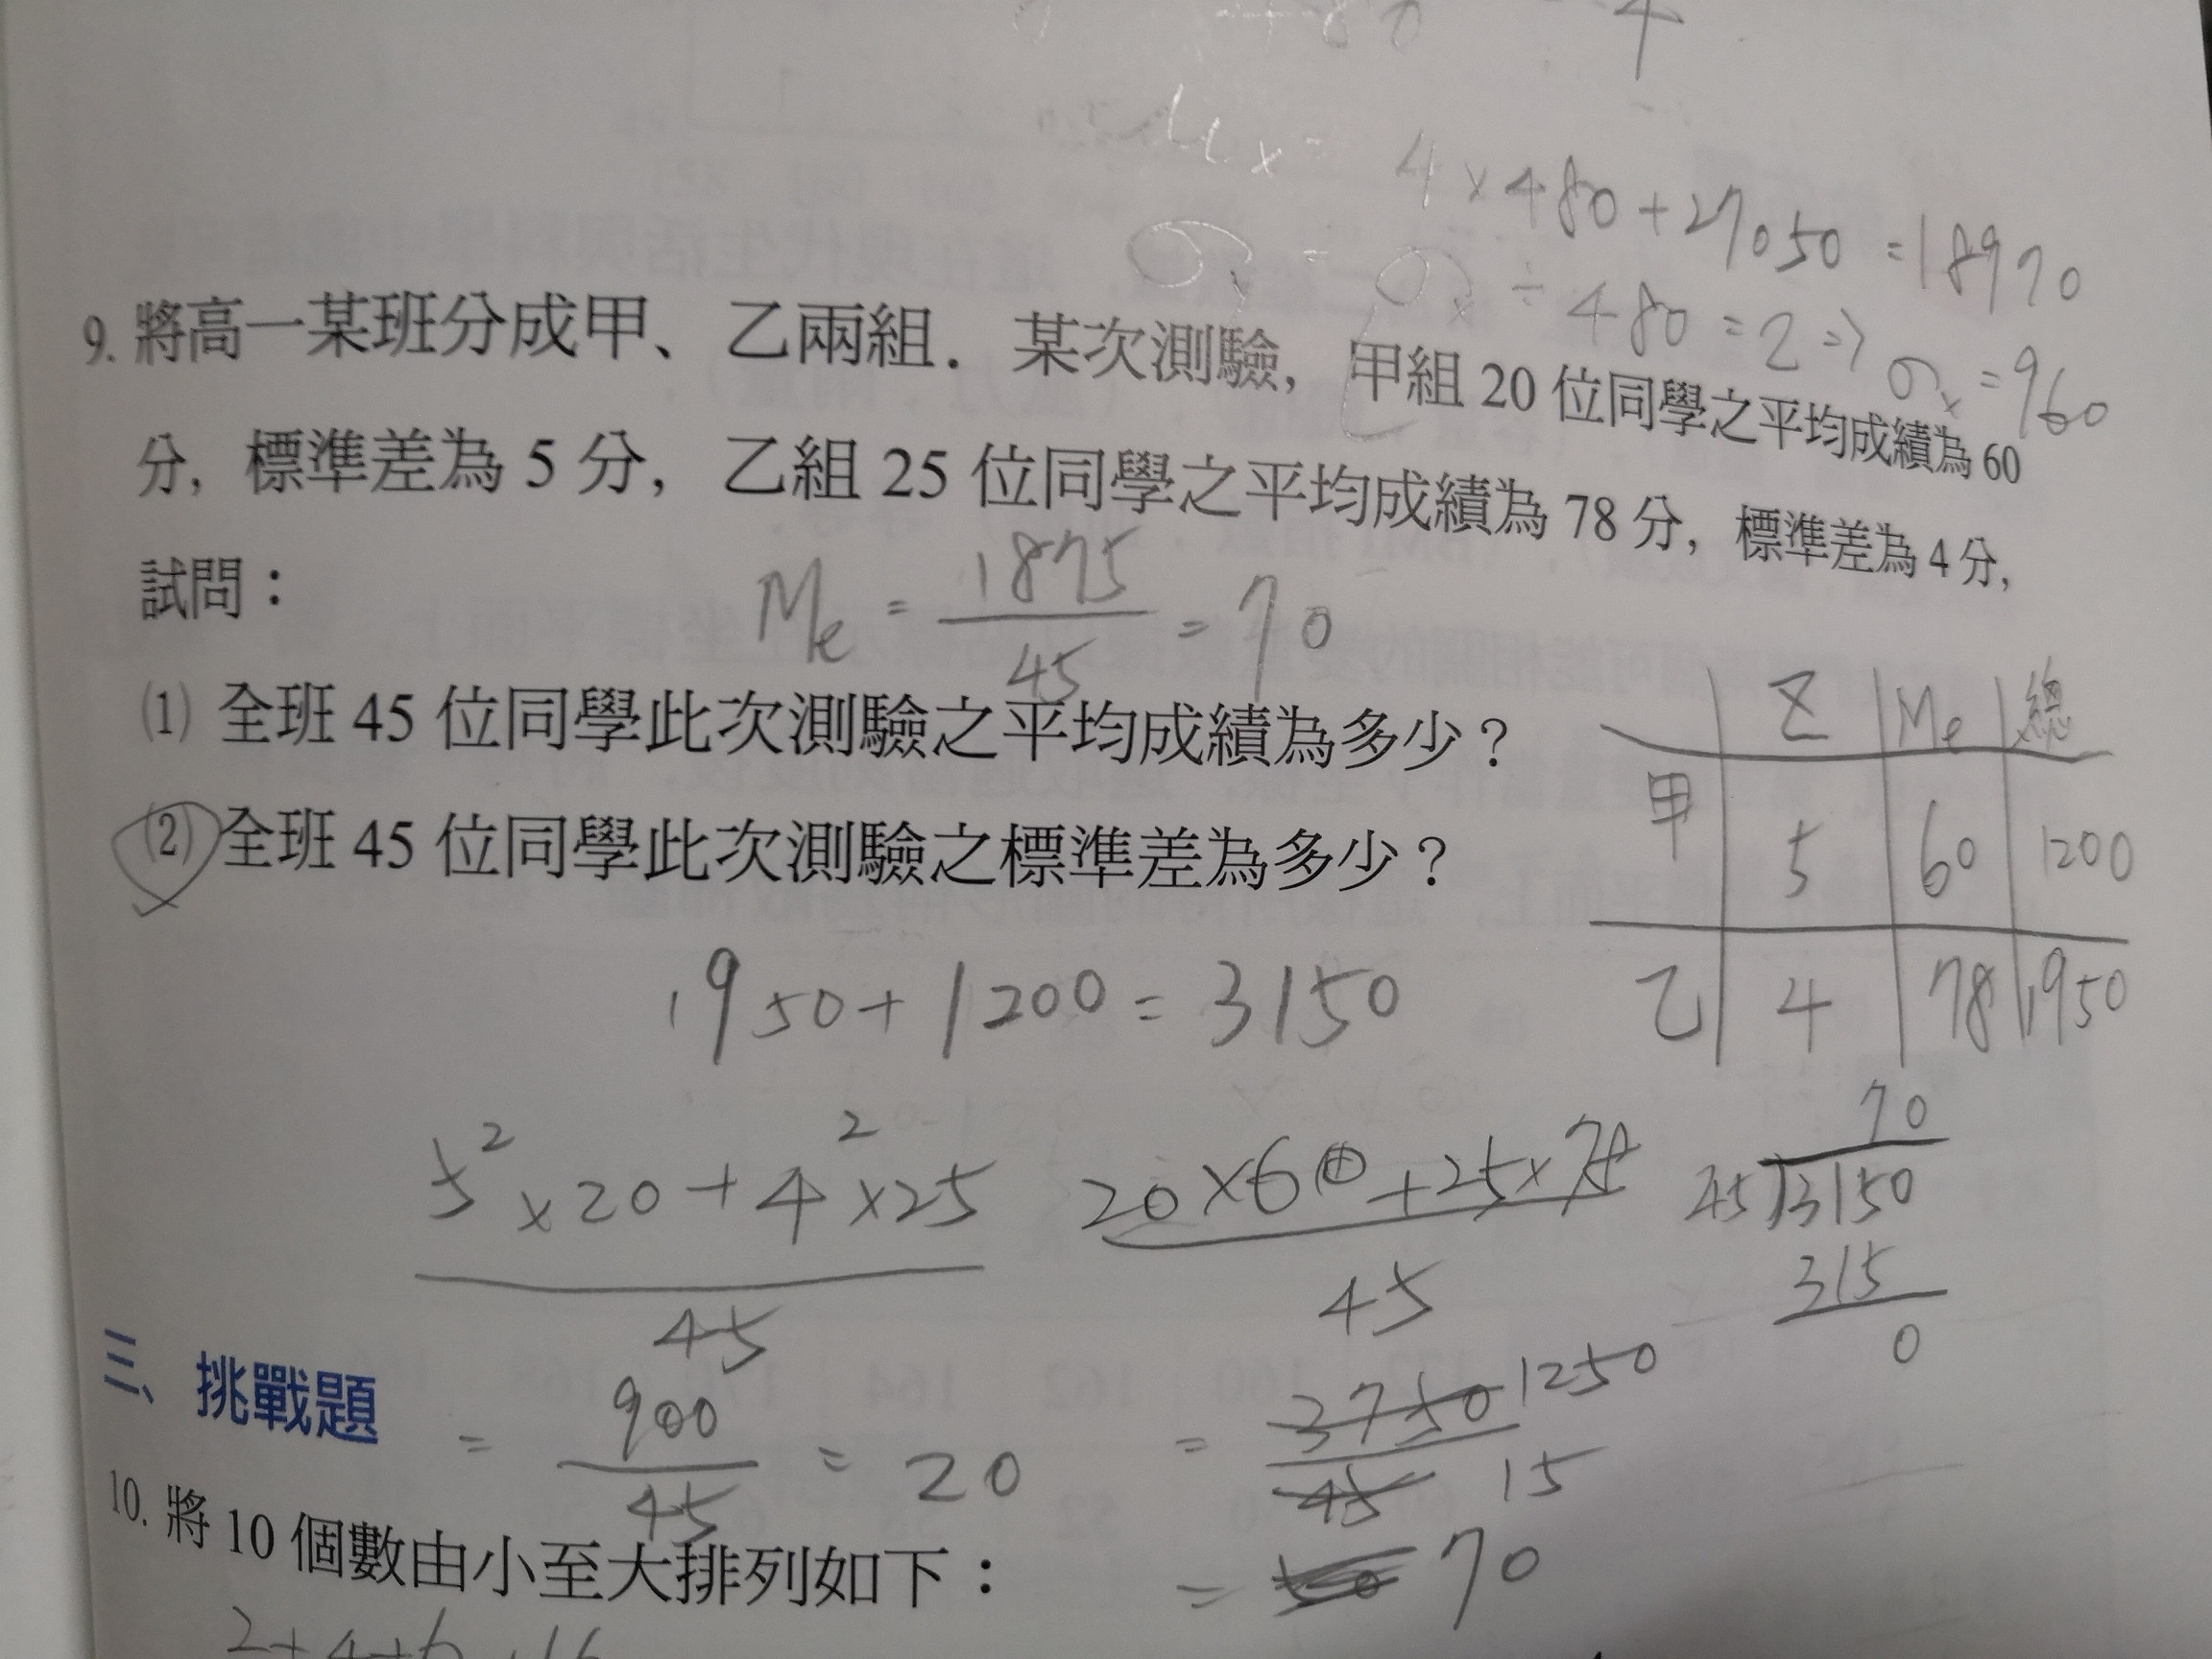 4×480+27050=18970
σy=σx÷480=2⇒σx=960
9. 將高一某班分成甲、乙兩組．某次測驗，甲組 20 位同學之平均成績為 60
分，標準差為 5 分，乙組 25 位同學之平均成績為 78 分，標準差為 4 分，
試問：
Me = 1875/45 = 70
(1) 全班 45 位同學此次測驗之平均成績為多少？
(2) 全班 45 位同學此次測驗之標準差為多少？
Me 總
甲 5 60 1200
乙 4 78 1950
1950+1200=3150
5²×20+4²×25
45
= 900/45 = 20
20×60+25×
45
= 3750 1250
45 15
= 70
70
45)3150
315
0
三、挑戰題
10. 將 10 個數由小至大排列如下：